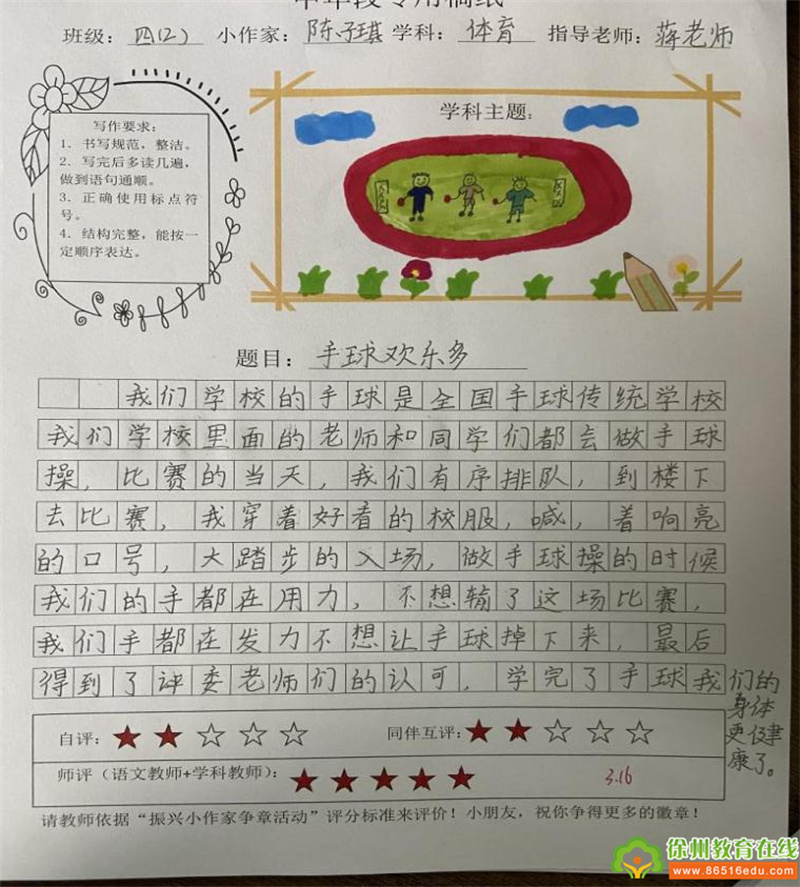 班级：四(2) 小作家：陈子琪 学科：体育 指导老师：蒋老师
写作要求：
1．书写规范，整洁。
2．写完后多读几遍，
做到语句通顺。
3．正确使用标点符
号。
4．结构完整，能按一
定顺序表达。
学科主题：
题目：手球欢乐多
我们学校的手球是全国手球传统学校
我们学校里面的老师和同学们都会做手球
操，比赛的当天，我们有序排队，到楼下
去比赛，我穿着好看的校服，喊，着响亮
的口号，大踏步的入场，做手球操的时候
我们的手都在用力，不想输了这场比赛，
我们手都在发力不想让手球掉下来，最后
得到了评委老师们的认可，学完了手球我们的
身体
更健
康了。
自评：★★☆☆☆ 同伴互评：★★☆☆☆
师评（语文教师+学科教师）：★★★★★ 3.16
请教师依据“振兴小作家争章活动”评分标准来评价！小朋友，祝你争得更多的徽章！
徐州教育在线
www.86516edu.com